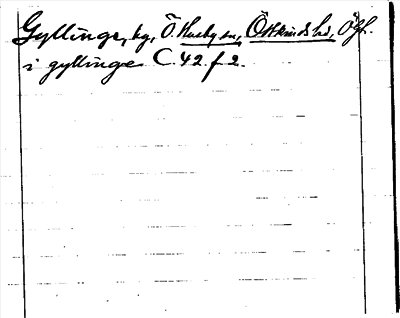 Gyllinge, by, Ö. Husby sn, Östkinds hd, Ögl.
i gyllinge C. 42. f 2.